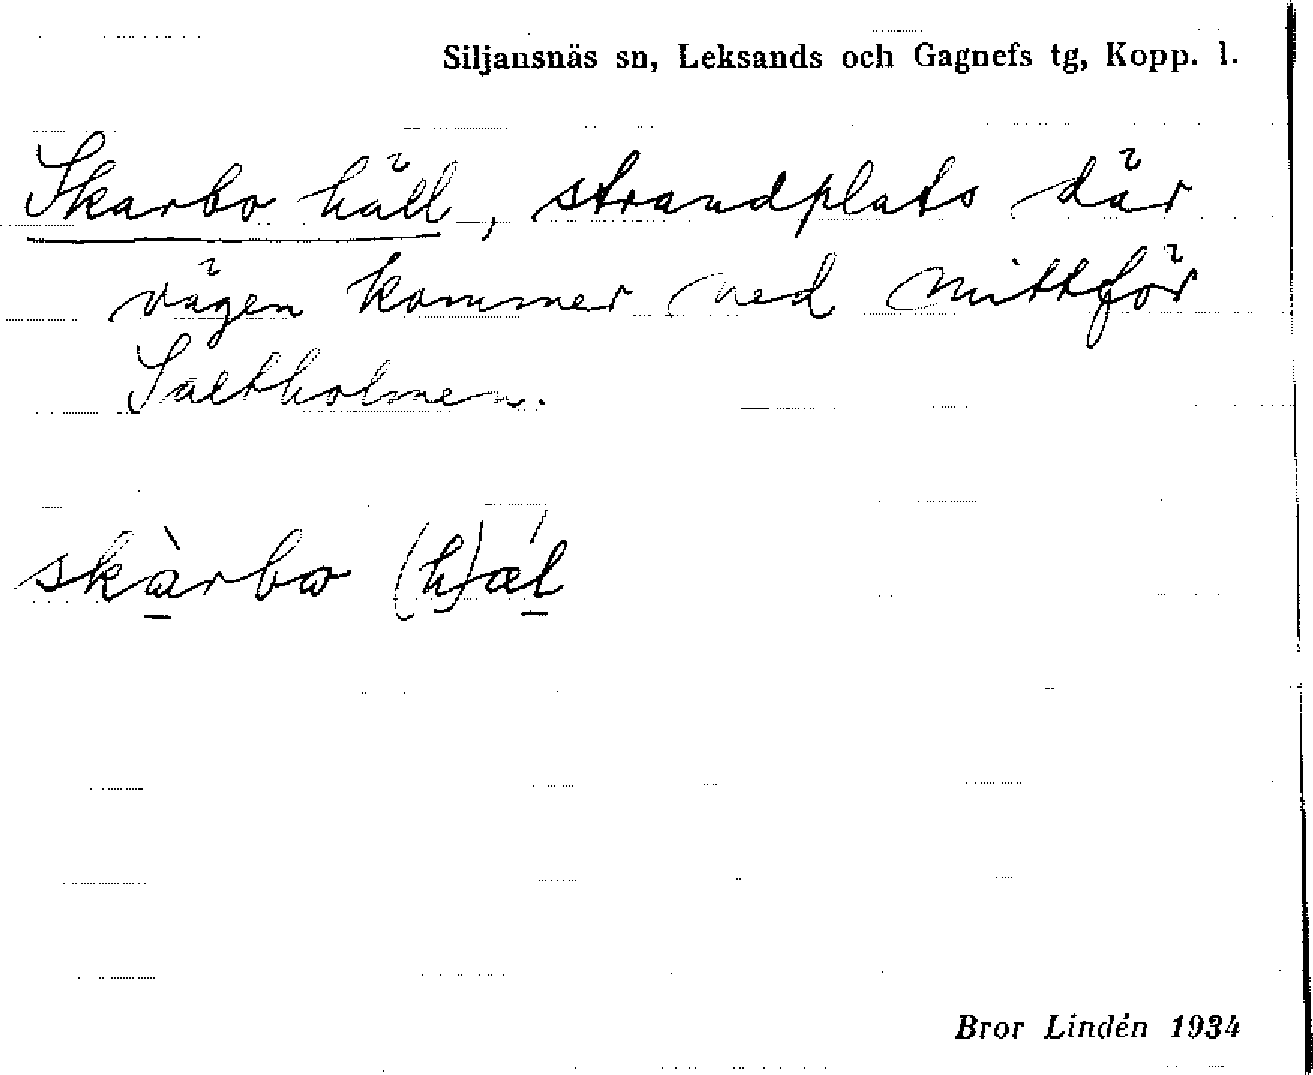 Siljansnäs sn, Leksands och Gagnefs tg, Kopp. l.
Skarbo häll, strandplats där
vägen kommer ned mittför
Saltholmen.
skàrbo (h)ǽl
Bror Lindén 1934